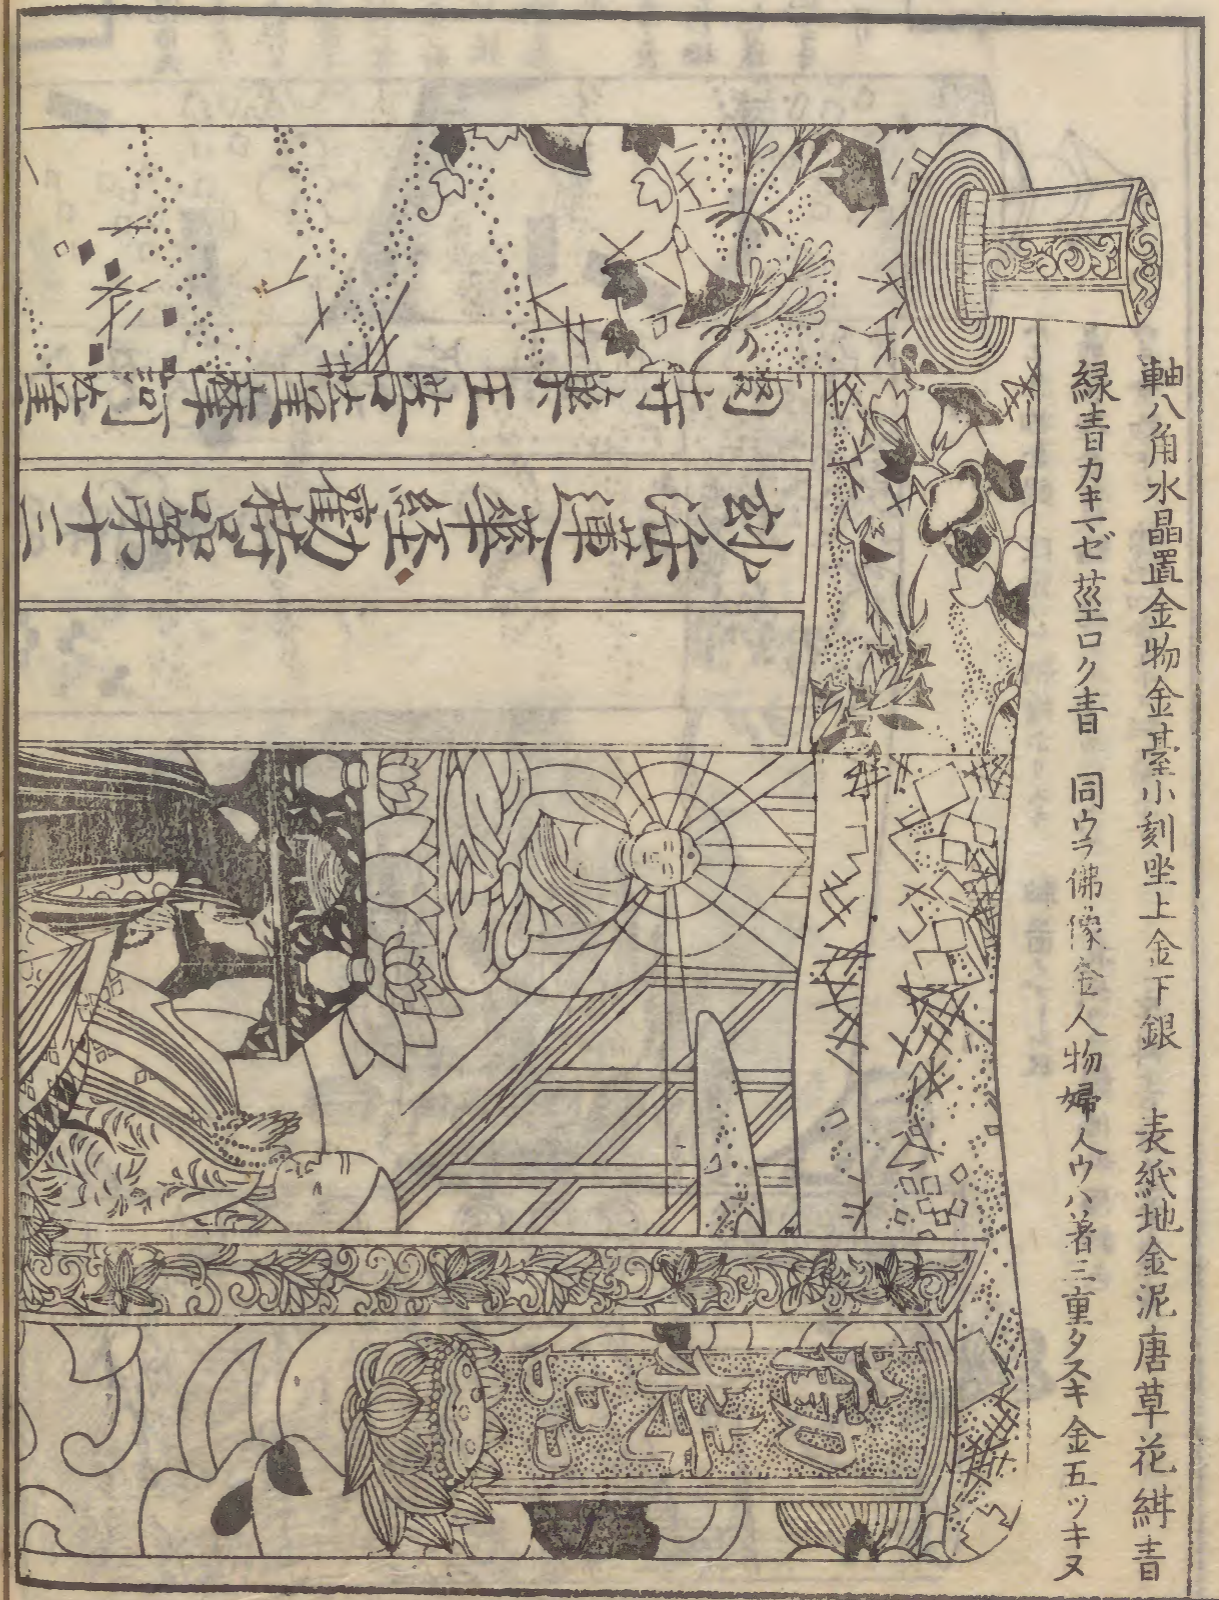 軸八角水晶置金物金臺小刻坐上金下銀　表紙地金泥唐草花紺青
緑青カキマゼ莖ロク青　同ウラ佛像金人物婦人ウハ著三重タスキ金五ツキヌ
妙法蓮華經勸持品第十三
爾時藥王菩薩摩訶薩
勸持品